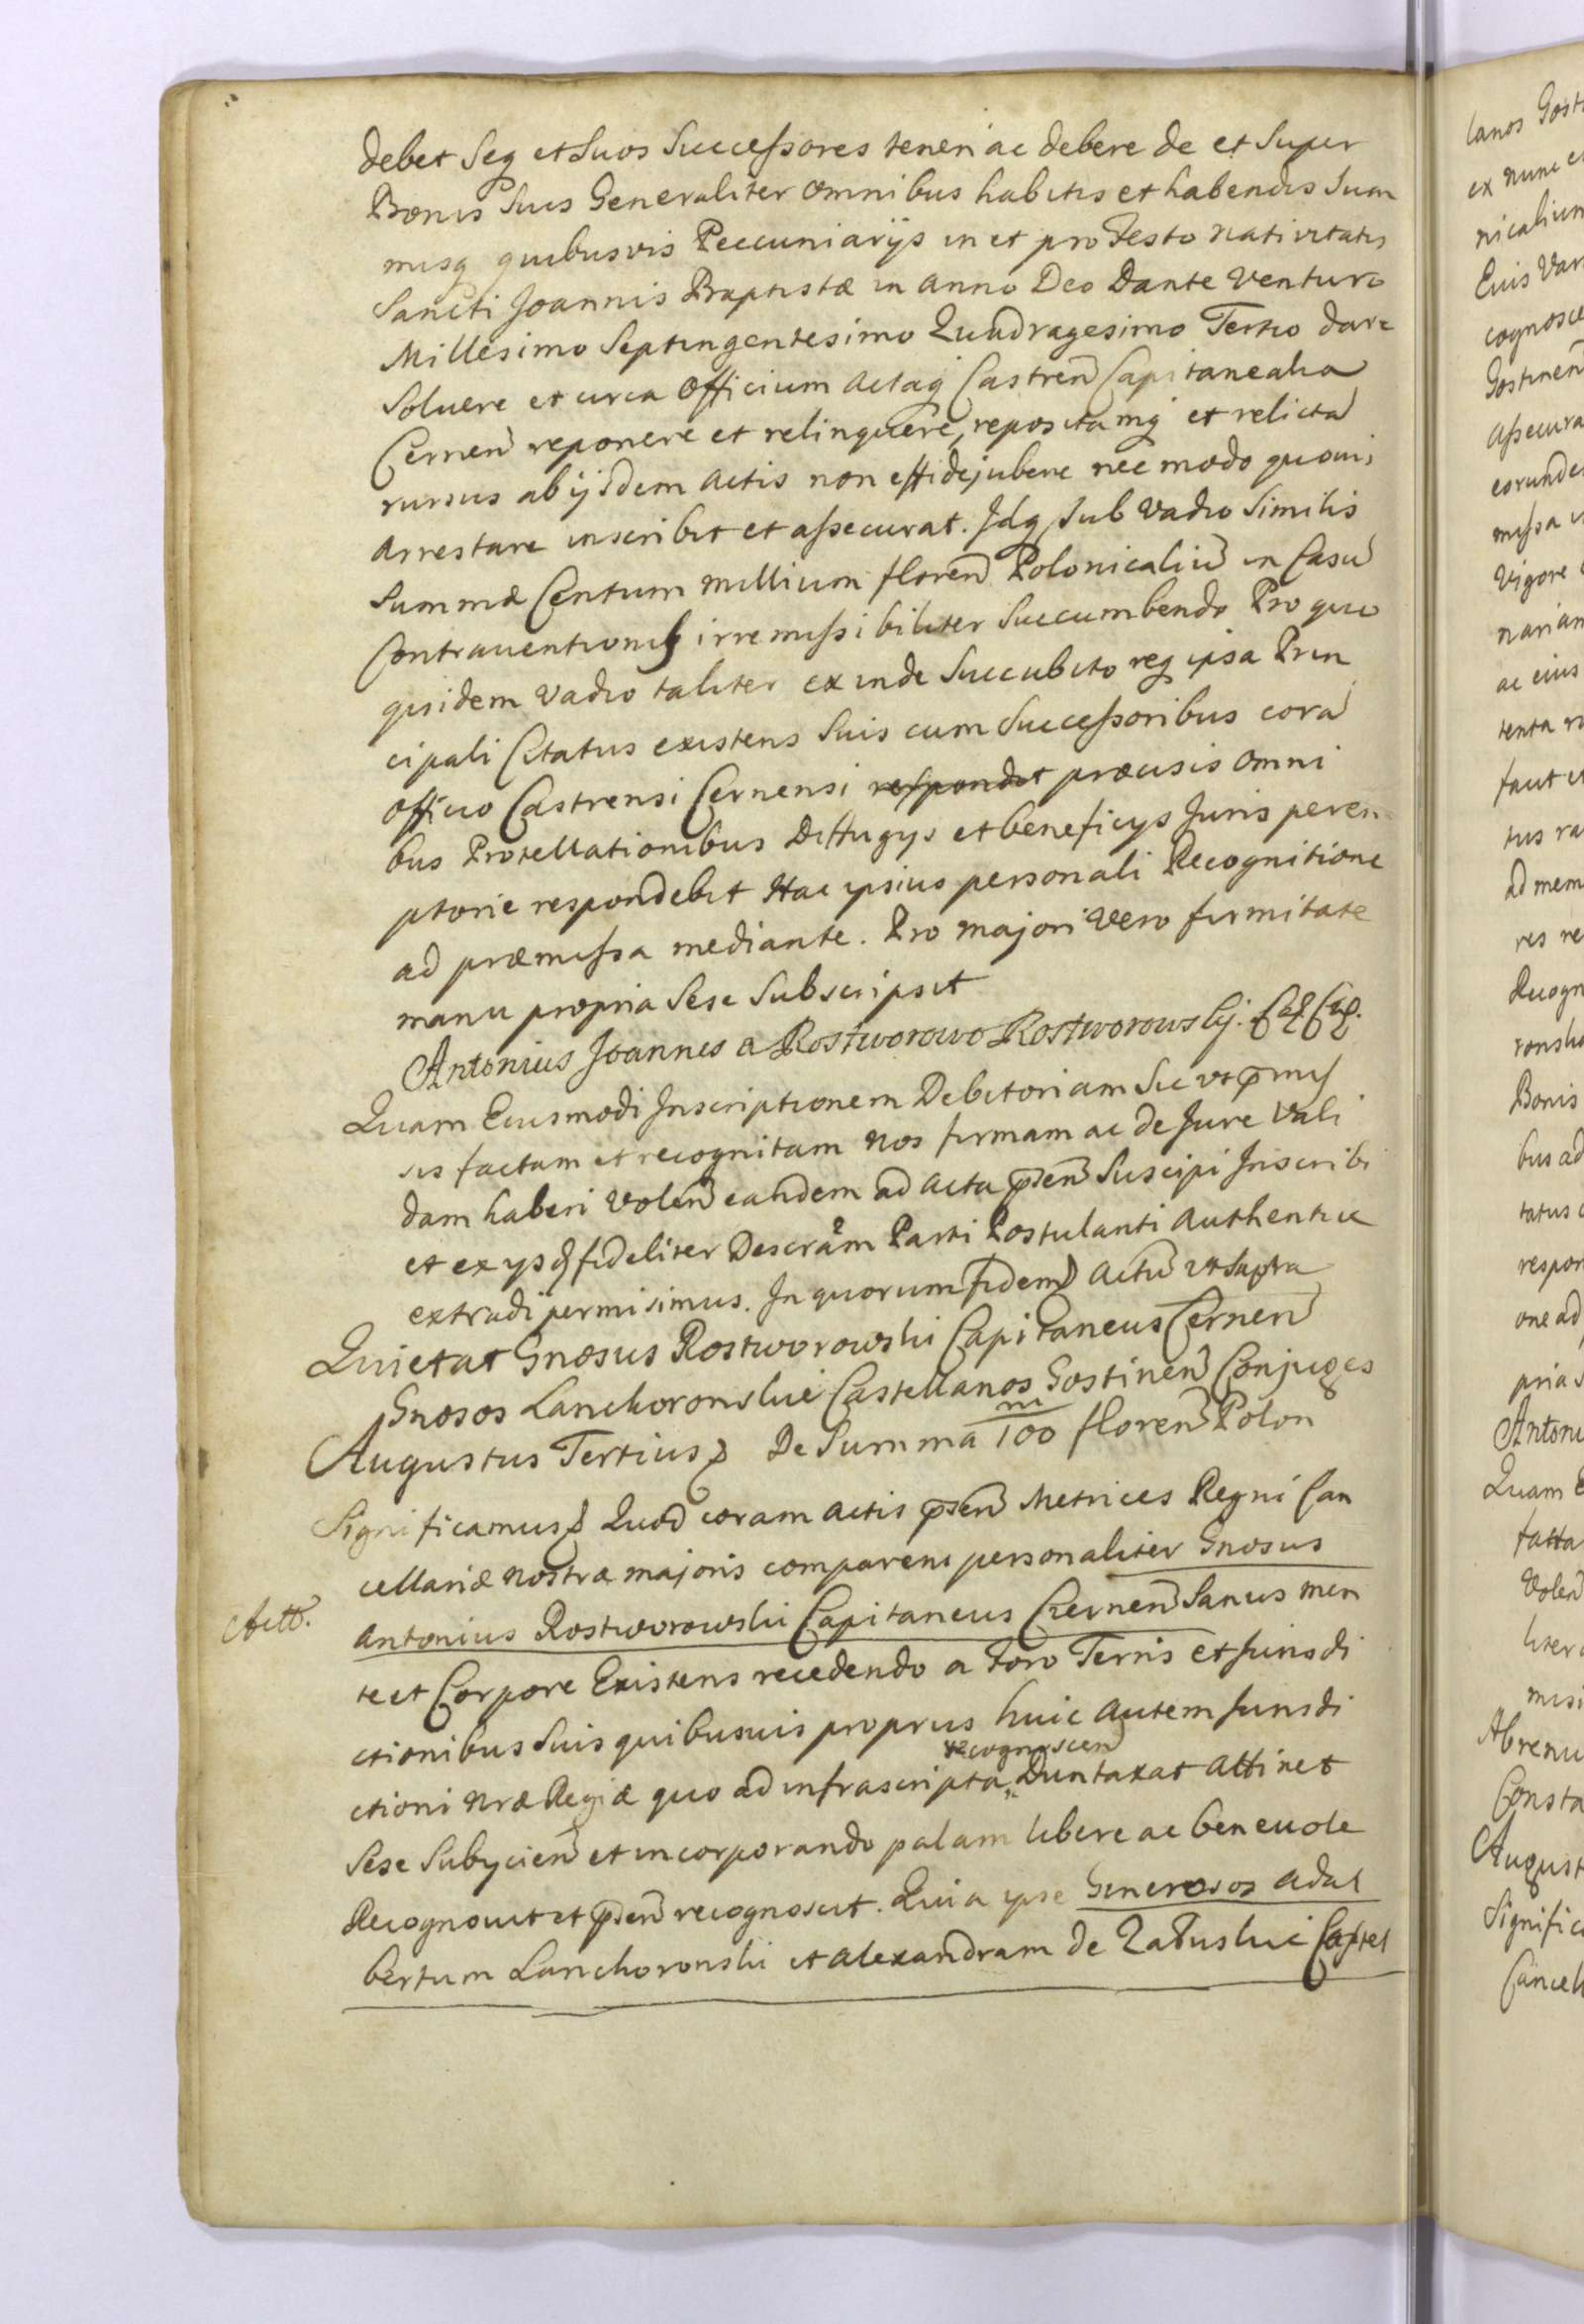 debet Seq et Suos Successores teneri ac debere de et Super
Bonis Suis Generaliter omnibus habitis et habendis Sum
misq quibusvis Peccuniarijs in et pro Festo Nativitatis
Sancti Joannis Baptistæ in Anno Deo Dante Venturo
Millesimo Septingentesimo Quadragesimo Tertio dare
Soluere et circa Officium Actaq Castren Capitanealia
Cernen reponere et relinquere, repositamq et relicta
rursus ab ijsdem Actis non effidejubere nec modo quovis
Arrestare inscribit et assecurat. Idq Sub Vadio Similis
Summæ Centum Millium floren Polonicaliu in Casu
Contrauentionis irremissibiliter Succumbendo Pro quo
quidem Vadio taliter exinde Succubito req ipsa Prin
cipali Citatus existens Suis cum Successoribus cora
Officio Castrensi Cernensi respondet præcisis Omni
bus Protellationibus Diffugys et beneficys Juris perem
ptorie respondebit Hac ipsius personali Recognitione
ad præmissa mediante. Pro majori Vero firmitate
manu propria Sese Subscripsit
Antonius Joannes a Rostworowo Rostworowskj.
Quam Eiusmodi Inscriptionem Debitoriam Sic ut pmis
sis factam et recognitam Nos firmam ac de Jure Vali
dam haberi Volen eandem ad Acta psen Suscipi Inscribi
et ex ysd fideliter Descram Parti Postulanti Authentice
extradi permisimus. In quorum fidem Actu ut Supra
Quietat Gnosus Rostworowski Capitaneus Cernen
Gnosos Lanckoronskie Castellanos Gostinen Conjuges
Augustus Tertius De Summa 100 m floren Polon
Significamus Quod coram Actis psen Metrices Regni Can
cellariæ Nostræ majoris comparens personaliter Gnosus
Actt.
Antonius Rostworowski Capitaneus Czernen Sanus men
te et Corpore Existens recedendo a Foro Terris et Jurisdi
ctionibus Suis quibusuis proprus huic Autem Jurisdi
ctioni Nræ Regiæ quo ad infrascripta recognoscen Duntaxat Attinet
Sese Subycien et incorporando palam libere ac beneuole
Recognouit et psen recognoscit. Quia ipse Generosos Adal
bertum Lanckoronski et Alexandram de Załuskie Castel